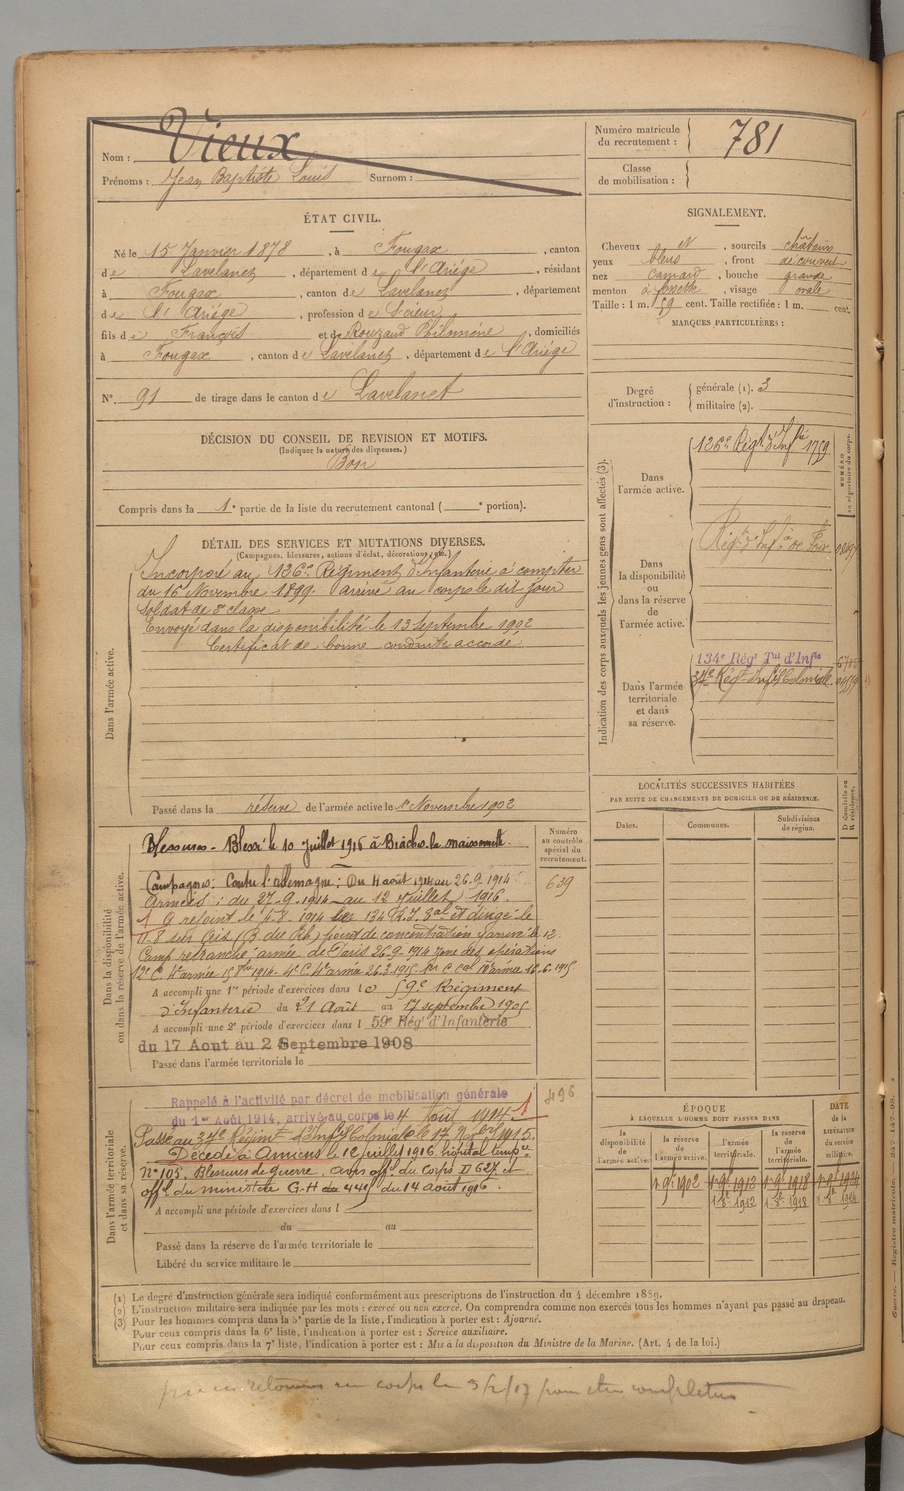 Nom : Vieux
Prénoms : Jean Baptiste Louis Surnom :
Numéro matricule du recrutement : 781
Classe de mobilisation :
ÉTAT CIVIL.
Né le 15 Janvier 1878, à Fougax, canton
de Lavelanet, département de l'Ariège, résidant
à Fougax, canton de Lavelanet, département
de l'Ariège, profession de Scieur
fils de François et de Rouzaud Philomène, domiciliés
à Fougax, canton de Lavelanet, département de l'Ariège
N° 91 de tirage dans le canton de Lavelanet
SIGNALEMENT.
Cheveux N, sourcils châtains
yeux bleus, front découvert
nez camard, bouche grande
menton à fossette, visage ovale
Taille : 1 m. 59 cent. Taille rectifiée : 1 m. cent.
MARQUES PARTICULIÈRES :
Degré d'instruction : générale (1). 3
militaire (2).
DÉCISION DU CONSEIL DE REVISION ET MOTIFS.
(Indiquer la nature des dispenses.)
Bon
Compris dans la 1e partie de la liste du recrutement cantonal ( e portion).
DÉTAIL DES SERVICES ET MUTATIONS DIVERSES.
(Campagnes, blessures, actions d'éclat, décorations, etc.)
Dans l'armée active.
Incorporé au 126e Régiment d'Infanterie à compter
du 16 Novembre 1899. arrivé au corps le dit jour
soldat de 2e classe
Envoyé dans la disponibilité le 13 septembre 1902
Certificat de bonne conduite accordé
Passé dans la réserve de l'armée active le 1er Novembre 1902
Indication des corps auxquels les jeunes gens sont affectés (3).
NUMÉRO au répertoire du corps.
Dans l'armée active.
126e Régt d'Inf 1759
Dans la disponibilité ou dans la réserve de l'armée active.
Régt d'Infie de Foix
Dans l'armée territoriale et dans sa réserve.
134e Régt Tal d'Infie
34e Régt Infie Coloniale
LOCALITÉS SUCCESSIVES HABITÉES
PAR SUITE DE CHANGEMENTS DE DOMICILE OU DE RÉSIDENCE.
Dates. Communes. Subdivisions de région. D. domicile ou R. résidence.
Dans la disponibilité ou dans la réserve de l'armée active.
Numéro au contrôle spécial du recrutement.
639
Blessures - Blessé le 10 juillet 1916 à Biaches la maisonnette.
Campagnes : Contre l'Allemagne : Du 4 août 1914 au 26-9-1914
Armées : du 27-9-1914 au 12 juillet 1916.
1 A rejoint le 4-8-1914 le 134 R.I. et dirigé le
11-8 sur point de concentration, arrivé le 12
Camp retranché armée de Paris 26-9-1914 zone des opérations
A accompli une 1re période d'exercices dans le 59e Régiment
d'Infanterie du 21 Août au 17 septembre 1905
A accompli une 2e période d'exercices dans l 59e Régt d'Infanterie
du 17 Aout au 2 Septembre 1908
Passé dans l'armée territoriale le
Dans l'armée territoriale et dans sa réserve.
496
Rappelé à l'activité par décret de mobilisation générale
du 1er Août 1914, arrivé au corps le 4 Août 1914 1
Passé au 34e Régiment d'Infie Coloniale le 17 9bre 1915.
Décédé à Amiens le 12 juillet 1916, hôpital tempre
N° 105, Blessures de guerre, avis offel du Corps D 627 et
offel du ministère G.H 44 du 14 août 1916.
A accompli une période d'exercices dans l
du au
Passé dans la réserve de l'armée territoriale le
Libéré du service militaire le
ÉPOQUE
À LAQUELLE L'HOMME DOIT PASSER DANS
la disponibilité de l'armée active. la réserve de l'armée active. l'armée territoriale. la réserve de l'armée territoriale.
DATE de la LIBÉRATION du service militaire.
1 9bre 1902 1 9bre 1912 1 9bre 1918 1 9bre 1924
1 8bre 1912 1 8bre 1918 1 8bre 1924
(1) Le degré d'instruction générale sera indiqué conformément aux prescriptions de l'instruction du 4 décembre 1889.
(2) L'instruction militaire sera indiquée par les mots : exercé ou non exercé. On comprendra comme non exercés tous les hommes n'ayant pas passé au drapeau.
(3) Pour les hommes compris dans la 5e partie de la liste, l'indication à porter est : Ajourné.
Pour ceux compris dans la 6e liste, l'indication à porter est : Service auxiliaire.
Pour ceux compris dans la 7e liste, l'indication à porter est : Mis à la disposition du Ministre de la Marine. (Art. 4 de la loi.)
au corps le 3/2/17 pour être complétée